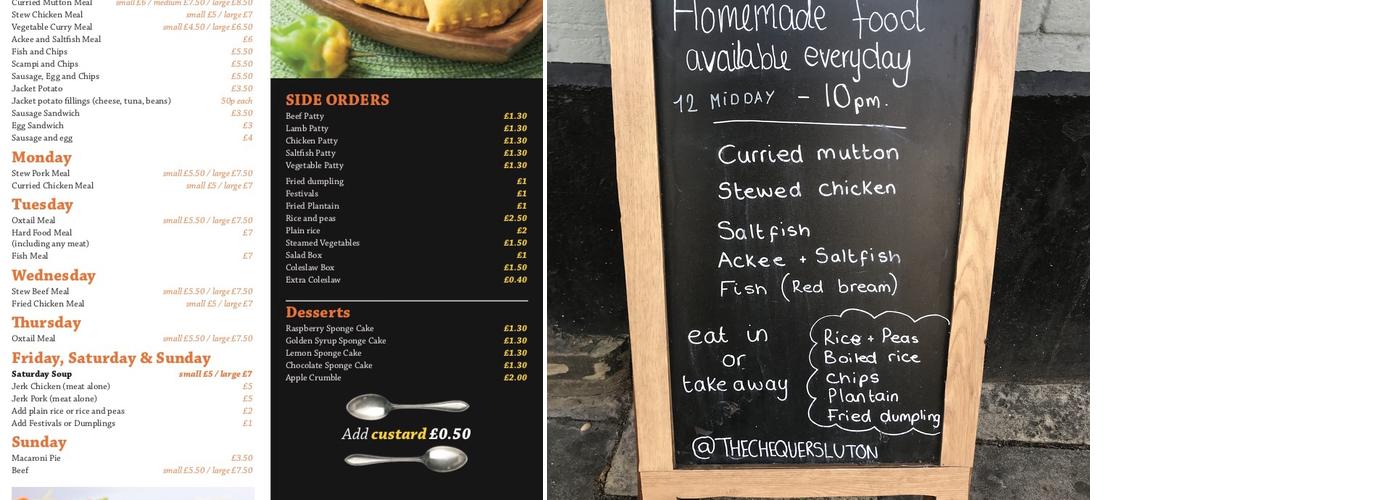 Curried Mutton Meal small £6 / medium £7.50 / large £8.50
Stew Chicken Meal small £5 / large £7
Vegetable Curry Meal small £4.50 / large £6.50
Ackee and Saltfish Meal £6
Fish and Chips £5.50
Scampi and Chips £5.50
Sausage, Egg and Chips £5.50
Jacket Potato £3.50
Jacket potato fillings (cheese, tuna, beans) 50p each
Sausage Sandwich £3.50
Egg Sandwich £3
Sausage and egg £4
Monday
Stew Pork Meal small £5.50 / large £7.50
Curried Chicken Meal small £5 / large £7
Tuesday
Oxtail Meal small £5.50 / large £7.50
Hard Food Meal £7
(including any meat)
Fish Meal £7
Wednesday
Stew Beef Meal small £5.50 / large £7.50
Fried Chicken Meal small £5 / large £7
Thursday
Oxtail Meal small £5.50 / large £7.50
Friday, Saturday & Sunday
Saturday Soup small £5 / large £7
Jerk Chicken (meat alone) £5
Jerk Pork (meat alone) £5
Add plain rice or rice and peas £2
Add Festivals or Dumplings £1
Sunday
Macaroni Pie £3.50
Beef small £5.50 / large £7.50
SIDE ORDERS
Beef Patty £1.30
Lamb Patty £1.30
Chicken Patty £1.30
Saltfish Patty £1.30
Vegetable Patty £1.30
Fried dumpling £1
Festivals £1
Fried Plantain £1
Rice and peas £2.50
Plain rice £2
Steamed Vegetables £1.50
Salad Box £1
Coleslaw Box £1.50
Extra Coleslaw £0.40
Desserts
Raspberry Sponge Cake £1.30
Golden Syrup Sponge Cake £1.30
Lemon Sponge Cake £1.30
Chocolate Sponge Cake £1.30
Apple Crumble £2.00
Add custard £0.50
Homemade food
available everyday
12 MIDDAY - 10pm.
Curried mutton
Stewed chicken
Saltfish
Ackee + Saltfish
Fish (Red bream)
eat in
or
take away
Rice + Peas
Boiled rice
Chips
Plantain
Fried dumpling
@THECHEQUERSLUTON